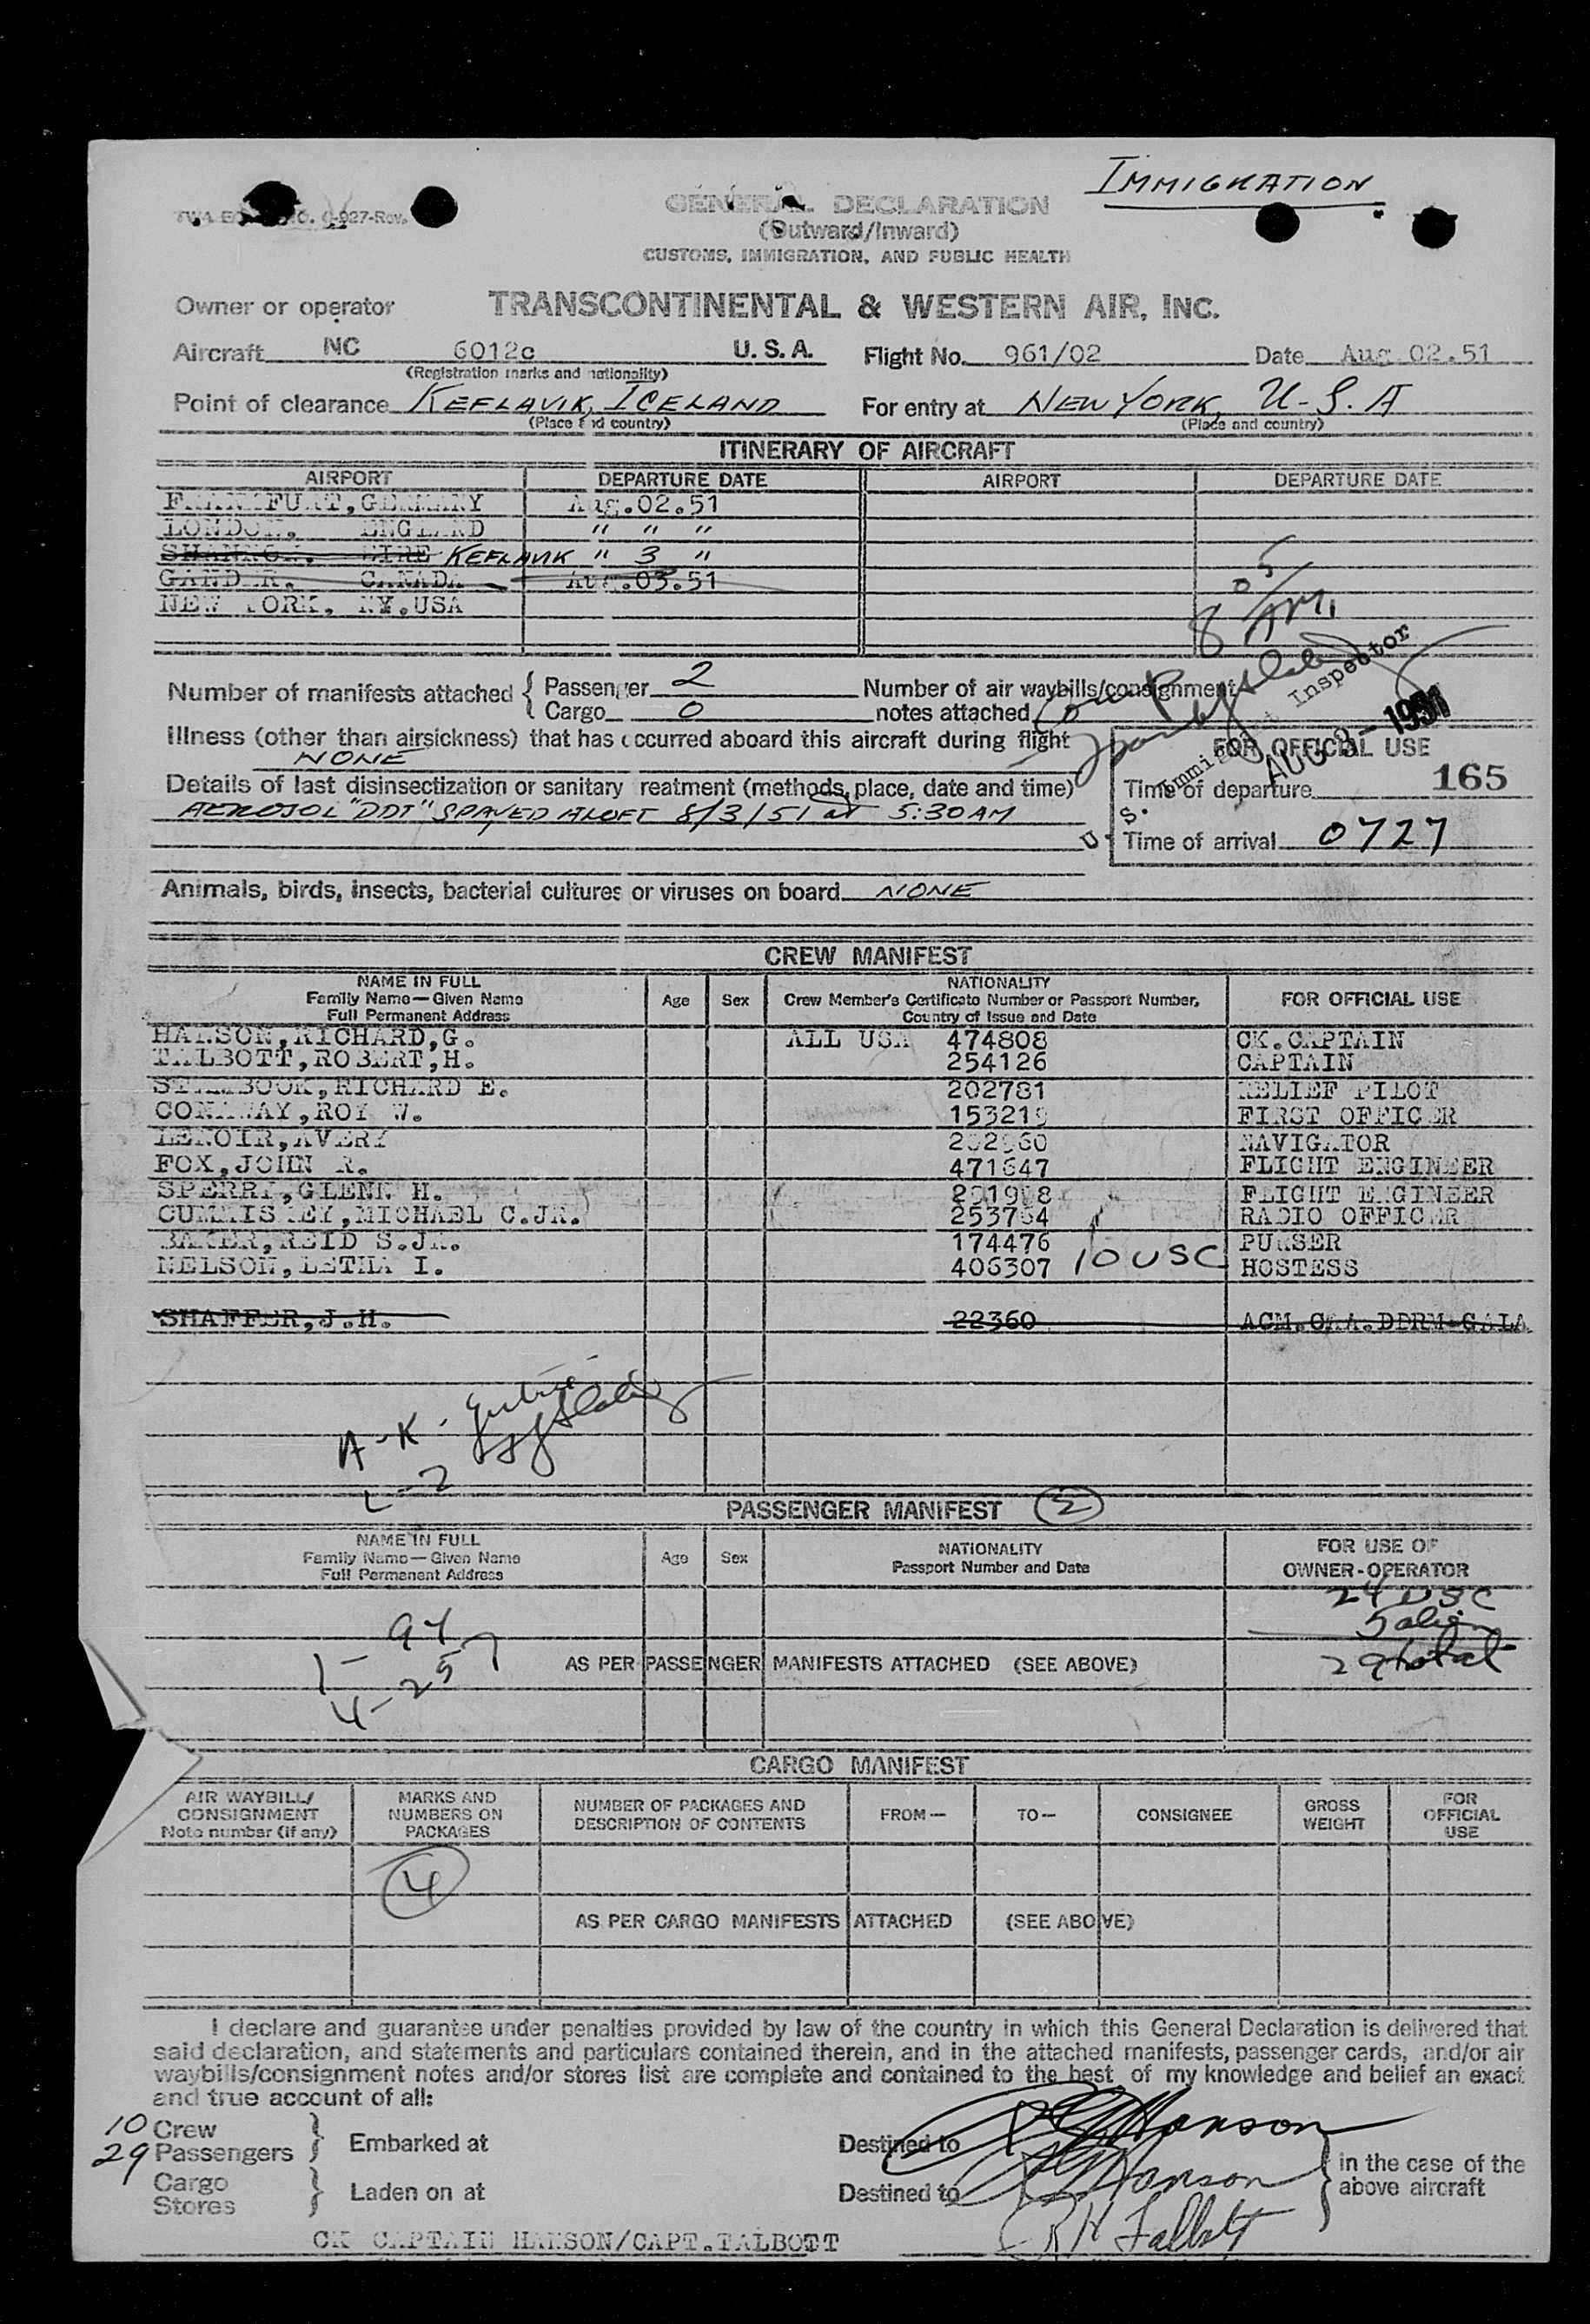 IMMIGRATION
-927-Rev.
GENERAL DECLARATION
(Outward/Inward)
CUSTOMS, IMMIGRATION, AND PUBLIC HEALTH
Owner or operator TRANSCONTINENTAL & WESTERN AIR, INC.
Aircraft NC 6012c U.S.A. Flight No. 961/02 Date Aug 02.51
(Registration marks and nationality)
Point of clearance KEFLAVIK, ICELAND For entry at NEW YORK, U-S.A
(Place and country) (Place and country)
ITINERARY OF AIRCRAFT
AIRPORT DEPARTURE DATE AIRPORT DEPARTURE DATE
FRANKFURT, GERMANY Aug.02.51
LONDON, ENGLAND " " "
SHANNON, EIRE KEFLAVIK " 3 "
GANDER, CANADA Aug.03.51
NEW YORK, NY.USA
8 05/AM
Number of manifests attached { Passenger 2 Number of air waybills/consignment
Cargo 0 notes attached 0
U. S. Immigrant Inspector
AUG 3 - 1951
Illness (other than airsickness) that has occurred aboard this aircraft during flight
NONE
FOR OFFICIAL USE
Details of last disinsectization or sanitary treatment (methods, place, date and time)
165
Time of departure
AEROSOL "DDT" SPAYED ALOFT 8/3/51 at 5:30 AM
Time of arrival 0727
Animals, birds, insects, bacterial cultures or viruses on board NONE
CREW MANIFEST
NAME IN FULL
Family Name—Given Name
Full Permanent Address
Age Sex
NATIONALITY
Crew Member's Certificate Number or Passport Number,
Country of Issue and Date
FOR OFFICIAL USE
HANSON,RICHARD,G. ALL USA 474808 CK.CAPTAIN
TALBOTT,ROBERT,H. 254126 CAPTAIN
RICHARD E. 202781 RELIEF PILOT
CONAWAY,ROY W. 153219 FIRST OFFICER
LENOIR,AVERY NAVIGATOR
FOX,JOHN R. 471647 FLIGHT ENGINEER
SPERRY,GLENN H. FLIGHT ENGINEER
CUMMISKEY,MICHAEL C.JR. 253764 RADIO OFFICER
BAKER,REID S.JR. 174476 PURSER
NELSON,LETHA I. 406307 10 USC HOSTESS
SHAFFER,J.H. 22360 ACM.CAA.DDRM-GALA
A-K.
L-Z
PASSENGER MANIFEST 2
NAME IN FULL
Family Name—Given Name
Full Permanent Address
Age Sex
NATIONALITY
Passport Number and Date
FOR USE OF
OWNER-OPERATOR
24 USC
5 alien
29 total
1- 94
4- 257
AS PER PASSENGER MANIFESTS ATTACHED (SEE ABOVE)
CARGO MANIFEST
AIR WAYBILL/
CONSIGNMENT
Note number (if any)
MARKS AND
NUMBERS ON
PACKAGES
NUMBER OF PACKAGES AND
DESCRIPTION OF CONTENTS
FROM— TO— CONSIGNEE
GROSS
WEIGHT
FOR
OFFICIAL
USE
4
AS PER CARGO MANIFESTS ATTACHED (SEE ABOVE)
I declare and guarantee under penalties provided by law of the country in which this General Declaration is delivered that
said declaration, and statements and particulars contained therein, and in the attached manifests, passenger cards, and/or air
waybills/consignment notes and/or stores list are complete and contained to the best of my knowledge and belief an exact
and true account of all:
10 Crew
29 Passengers } Embarked at Destined to RG Hanson
Cargo
Stores } Laden on at Destined to RG Hanson } in the case of the
above aircraft
RH Talbott
CK CAPTAIN HANSON/CAPT.TALBOTT